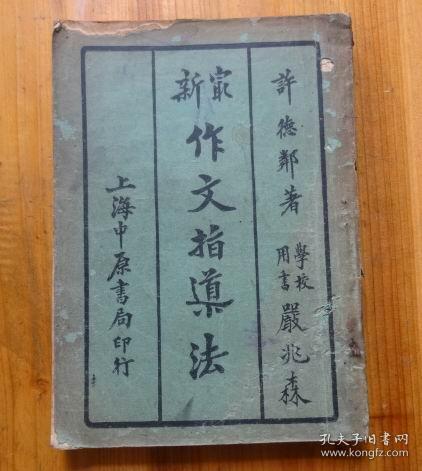 許德鄰著
學校用書
嚴兆森
最新
作文指導法
上海中原書局印行
孔夫子旧书网